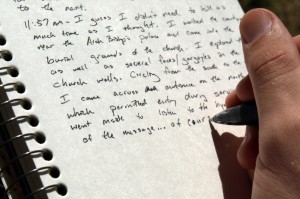 to the next.
11:57 AM - I guess I didn't need to kill as
much time as I thought. I walked the
near the Arch Bishop's palace and came into the
burial grounds of the church. I explored
as well as several faces/gargoyles in the
church walls. Circling from the south to the
I came across an entrance on the north
which permitted entry during service
went inside to listen to the
of the message... of cour